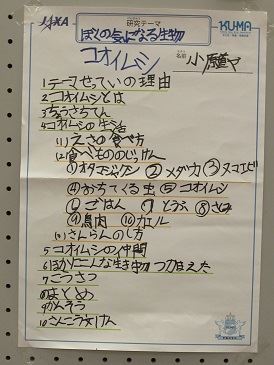 JAXA
研究テーマ
KU-MA
ぼくの気になる生物
コオイムシ
名前
1テーマせっていの理由
2コオイムシとは
3ちょうさちてん
4コオイムシの生活
(1)えさの食べ方
(2)食べもののじっけん
①オタマジャクシ ②メダカ ③ヌマエビ
④おちてくる虫 ⑤コオイムシ
⑥ごはん ⑦とうふ ⑧さしみ
⑨鳥肉 ⑩カエル
(3)さんらんのし方
5コオイムシの仲間
6ほかにこんな生き物つかまえた
7こうさつ
8まとめ
9かんそう
10さんこう文けん